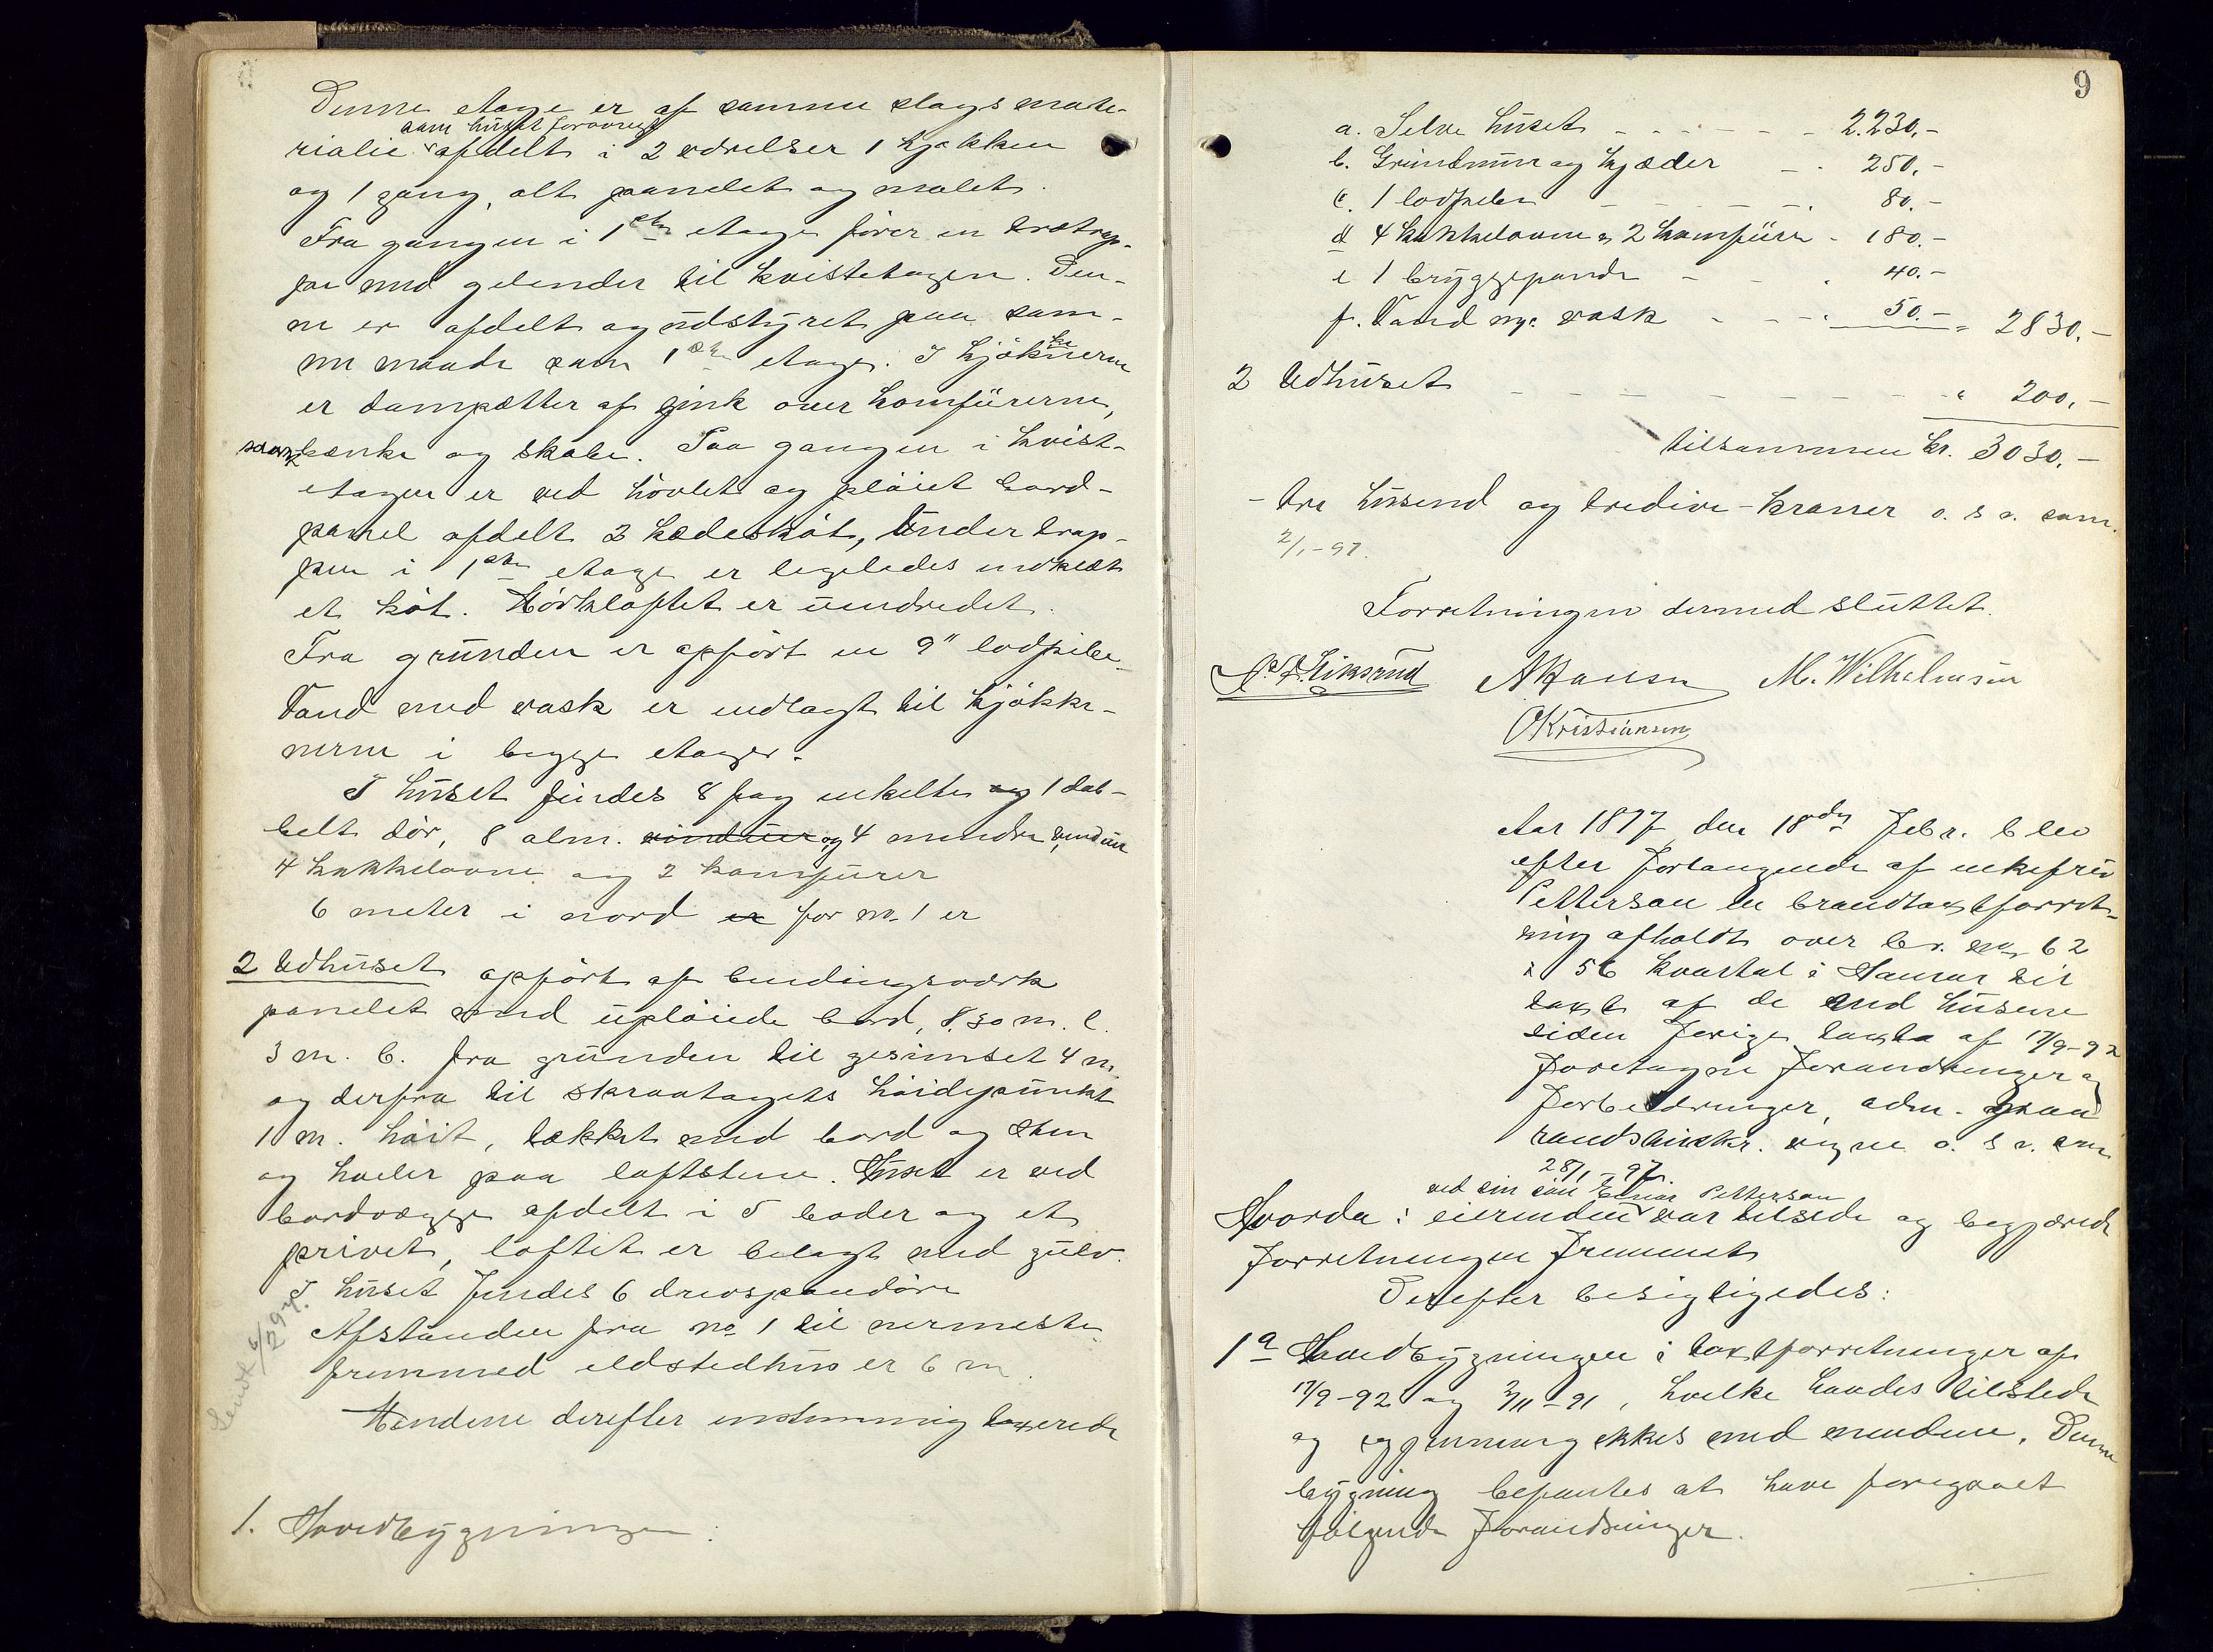 Denne etage er af samme slags mate-
som huset forøvrigt
rialie afdelt i 2 værelser 1 kjøkken
og 1 gang, alt panelet og malet.
Fra gangen i 1ste etage fører en trætrap-
pe med gelender til kvistetagen. Den-
ne er afdelt og udstyret paa sam-
me maade som 1ste etage. I kjøkkenerne
er dampætter af zink over komfurerne,
bænke og skabe. Paa gangen i kvist-
etagen er ved høvlet og pløiet bord-
panel afdelt 2 klædeskot, under trap-
pen i 1ste etage er ligeledes indklædt
et kot. Mørkloftet er uindredet.
Fra grunden er opført en 9" lodpibe.
Vand med vask er indlagt til kjøkke-
nerne i begge etager.
I huset findes 8 fag enkelte og 1 dob-
belt dør, 8 alm. vinduer og 4 mindre vinduer
4 kakkelovne og 2 komfurer
6 meter i nord er for no. 1 er
2 Udhuset opført af bindingsværk
panelet med upløiede bord, 8.30 m. l.
3 m. b. fra grunden til gesimset 4 m.
og derfra til skraatagets høidepunkt
1 m. høit, tækket med bord og sten
og hviler paa loftstene. Huset er ved
bordvægge afdelt i 5 boder og et
privet, loftet er belagt med gulv.
I huset findes 6 drevspeudøre
Afstanden fra no 1 til nærmeste
fremmed ildstedhus er 6 m.
Sendt 6/2 97.
Mændene derefter enstemmig taxerede
1. Hovedbygningen:
9
a. Selve huset - - - - - - 2.230,-
b. Grundmur og kjælder - - 250,-
c. 1 lodpibe - - - - - 80,-
d 4 kakkelovne og 2 komfurer - 180,-
e 1 bryggepande - - - 40,-
f. Vand og vask - - - 50,- = 2830,-
2 Udhuset - - - - - - - - " 200,-
tilsammen kr. 3030,-
- tre tusend og tredive - kroner o. s v. som
2/1-97.
Forretningen dermed sluttet.
A Hansen M. Wilhelmsen
O Kristiansen
Aar 1897 den 18de Febr. blev
efter forlangende af enkefru
Petterson en brandtaxtforret-
ning afholdt over br. no. 62
i 56 kvartal i Hamar til
taxt af de med husene
siden forige taxta af 17/9-92
foretagne forandringer og
forbedringer, adm.
o. s v. som
28/1-97.
ved sin søn Einar Petterson
Hvorda: eierinden var tilstede og begjærede
forretningen fremmet
Derefter besigtigedes:
1 a Hovedbygningen i taxtforretninger af
17/9-92 og 3/11-91, hvilke havdes tilstede
og gjennemgikkes med mændene. Denne
bygning befantes at have foregaaet
følgende forandringer.